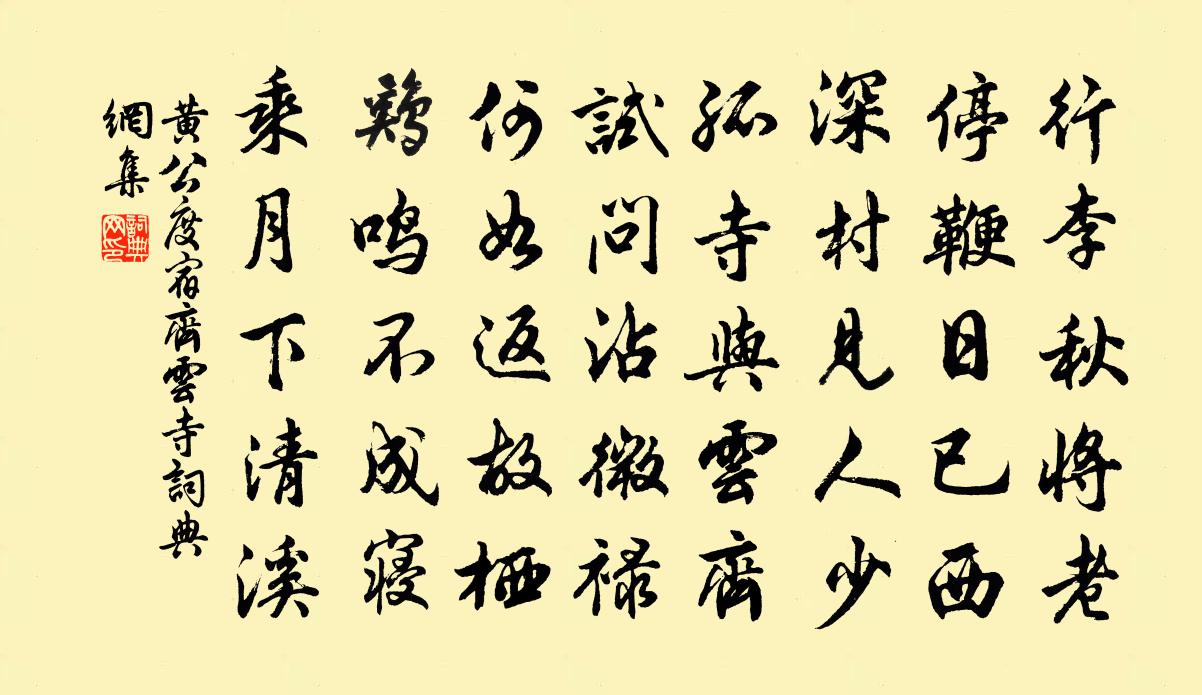 行李秋將老
停鞭日已西
深村見人少
孤寺與雲齊
試問沾微祿
何如返故栖
鷄鳴不成寢
乘月下清溪
黄公度宿齊雲寺詞典
網集
詞典
网印